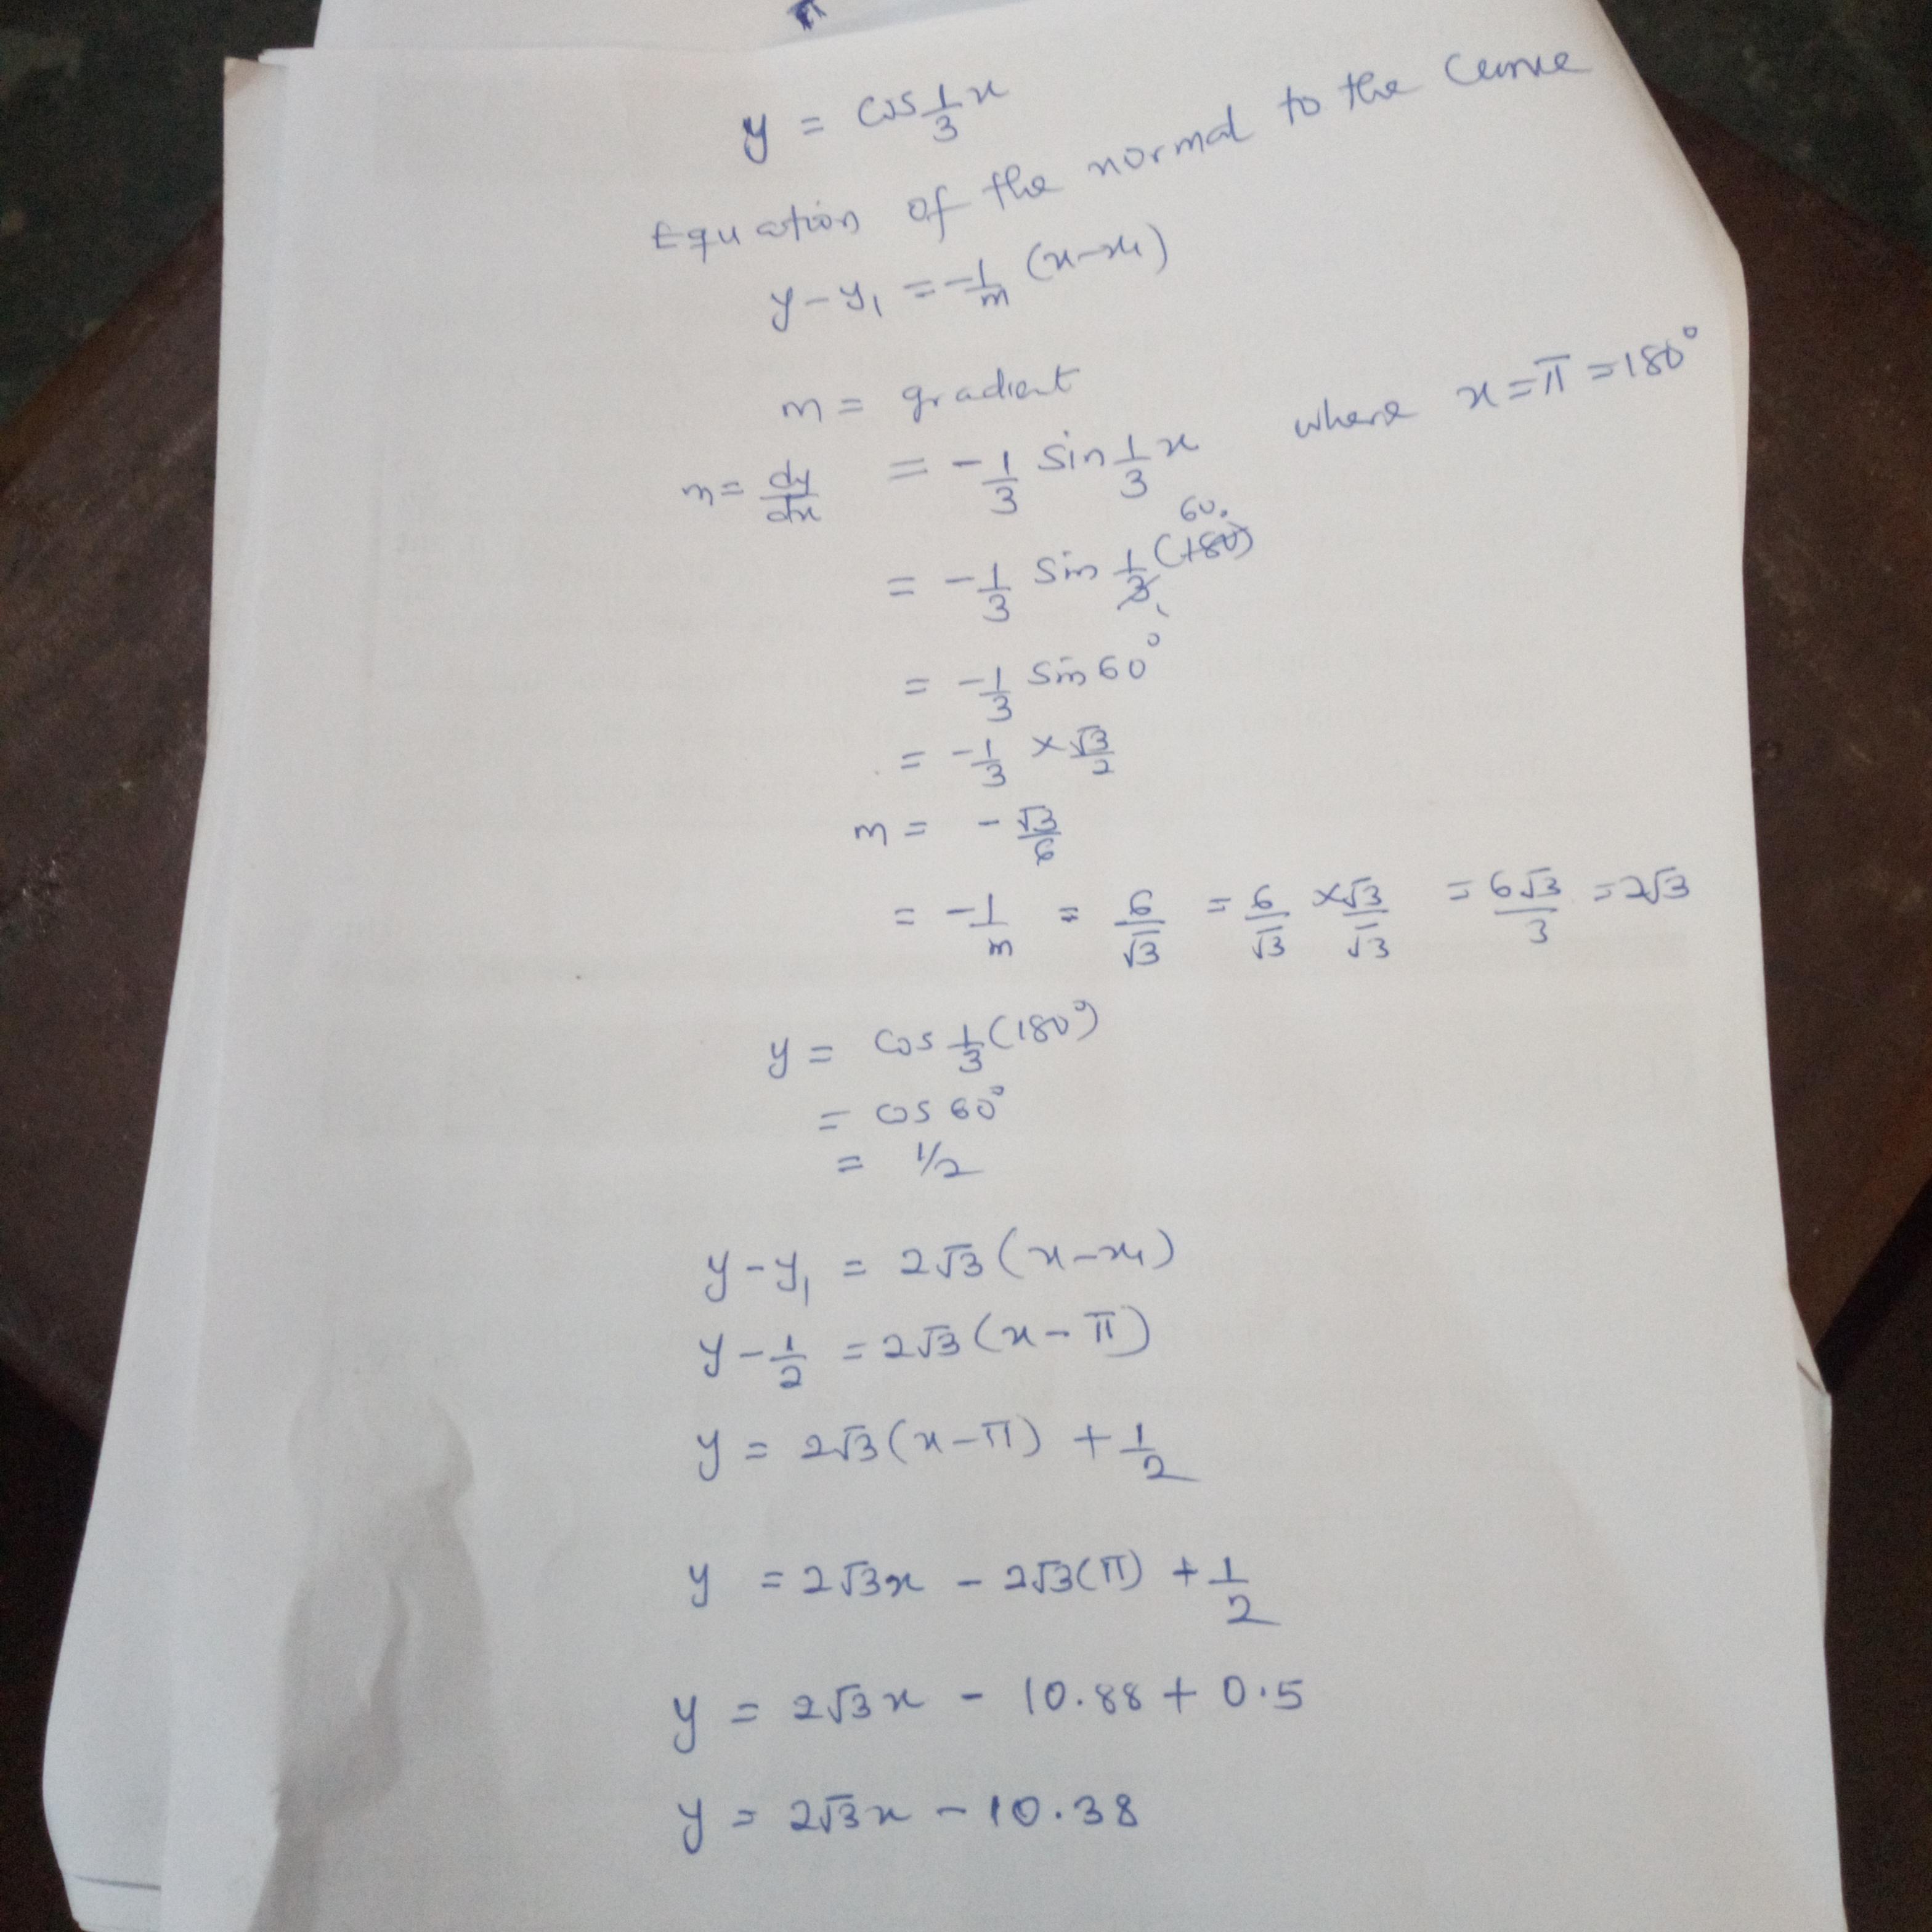 y = cos 1/3 x
Equation of the normal to the curve
y - y₁ = -1/m (x - x₁)
m = gradient
m = dy/dx = -1/3 sin 1/3 x where x = π = 180°
= -1/3 sin 1/3 (180) 60.
= -1/3 sin 60°
= -1/3 × √3/2
m = -√3/6
= -1/m = 6/√3 = 6/√3 × √3/√3 = 6√3/3 = 2√3
y = cos 1/3 (180°)
= cos 60°
= 1/2
y - y₁ = 2√3 (x - x₁)
y - 1/2 = 2√3 (x - π)
y = 2√3 (x - π) + 1/2
y = 2√3x - 2√3(π) + 1/2
y = 2√3x - 10.88 + 0.5
y = 2√3x - 10.38